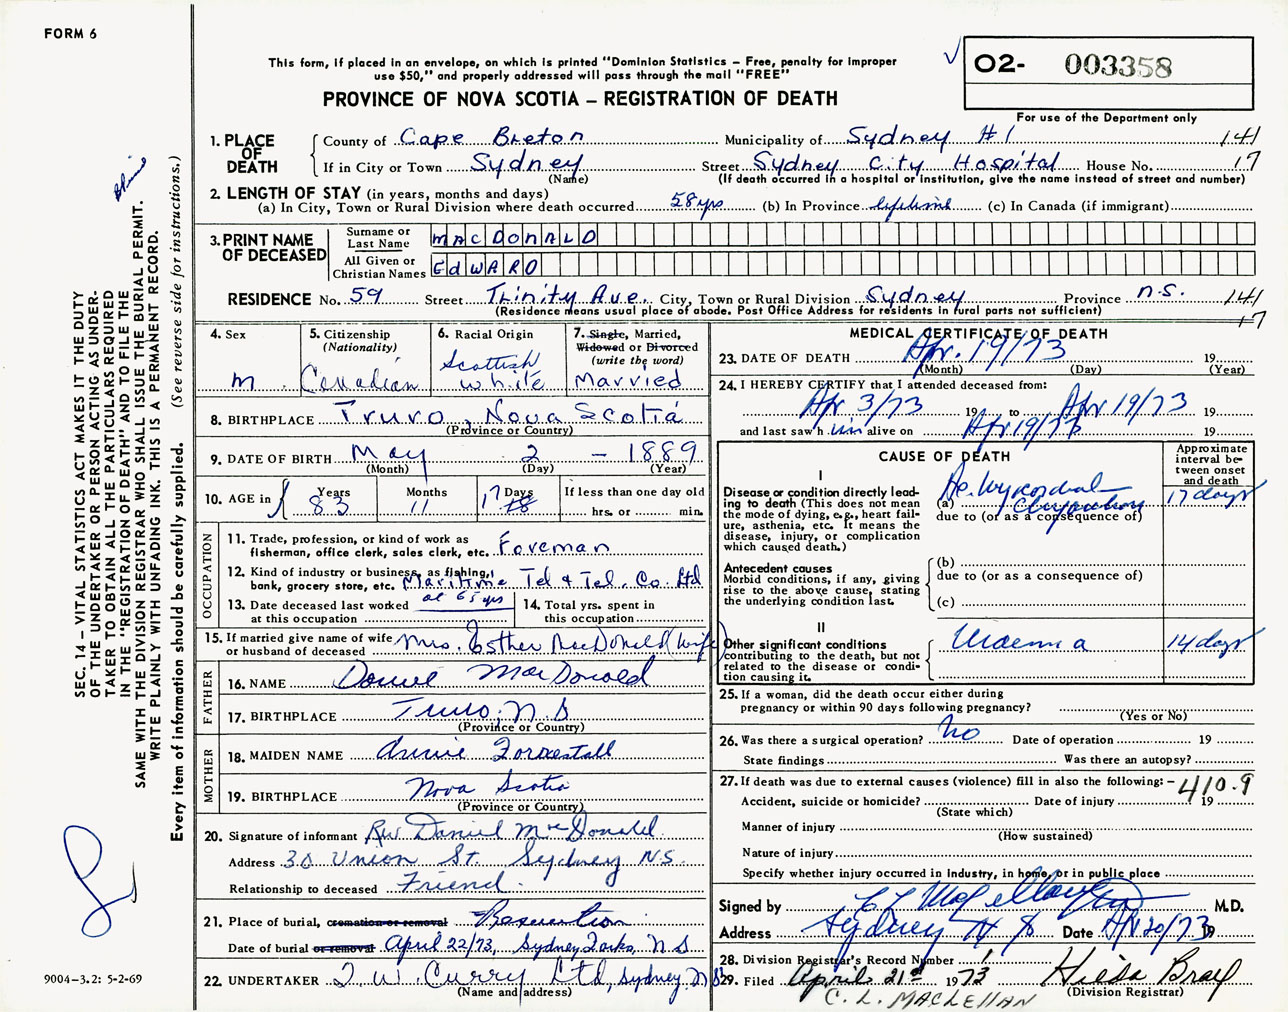 FORM 6
This form, if placed in an envelope, on which is printed "Dominion Statistics – Free, penalty for improper
use $50," and properly addressed will pass through the mail "FREE"
PROVINCE OF NOVA SCOTIA – REGISTRATION OF DEATH
O2- 003358
For use of the Department only
1. PLACE OF DEATH
County of Cape Breton Municipality of Sydney #1 141
If in City or Town Sydney Street Sydney City Hospital House No. 17
(Name) (If death occurred in a hospital or institution, give the name instead of street and number)
2. LENGTH OF STAY (in years, months and days)
(a) In City, Town or Rural Division where death occurred 58 yrs (b) In Province lifetime (c) In Canada (if immigrant)
3. PRINT NAME OF DECEASED
Surname or Last Name MACDONALD
All Given or Christian Names EdWARD
RESIDENCE No. 59 Street Trinity Ave. City, Town or Rural Division Sydney Province N.S. 141
(Residence means usual place of abode. Post Office Address for residents in rural parts not sufficient) 17
4. Sex
M.
5. Citizenship
(Nationality)
Canadian
6. Racial Origin
Scottish
White
7. Single, Married,
Widowed or Divorced
(write the word)
Married
8. BIRTHPLACE Truro, Nova Scotia
(Province or Country)
9. DATE OF BIRTH May 2 – 1889
(Month) (Day) (Year)
10. AGE in Years Months Days If less than one day old
83 11 17 18 hrs. or min.
OCCUPATION
11. Trade, profession, or kind of work as
fisherman, office clerk, sales clerk, etc. Foreman
12. Kind of industry or business, as fishing,
bank, grocery store, etc. Maritime Tel & Tel. Co. Ltd
13. Date deceased last worked
at this occupation at 65 yrs
14. Total yrs. spent in
this occupation
15. If married give name of wife
or husband of deceased Mrs. Esther MacDonald (wife)
FATHER
16. NAME MacDonald
17. BIRTHPLACE Truro, N.S
(Province or Country)
MOTHER
18. MAIDEN NAME Annie Forrestall
19. BIRTHPLACE Nova Scotia
(Province or Country)
20. Signature of informant Rev. Daniel MacDonald.
Address 30 Union St. Sydney N.S.
Relationship to deceased Friend.
21. Place of burial, cremation or removal Resurrection
Date of burial or removal April 22/73, Sydney Forks, N S
22. UNDERTAKER T. W. Curry Ltd, Sydney, NS
(Name and address)
MEDICAL CERTIFICATE OF DEATH
23. DATE OF DEATH Apr. 19/73 19
(Month) (Day) (Year)
24. I HEREBY CERTIFY that I attended deceased from:
Apr 3/73 19 to Apr 19/73 19
and last saw h im alive on Apr 19/73 19
CAUSE OF DEATH
Approximate interval between onset and death
I
Disease or condition directly leading to death (This does not mean the mode of dying, e.g., heart failure, asthenia, etc. It means the disease, injury, or complication which caused death.)
(a) 17 days
due to (or as a consequence of)
Antecedent causes
Morbid conditions, if any, giving rise to the above cause, stating the underlying condition last.
(b)
due to (or as a consequence of)
(c)
II
Other significant conditions
contributing to the death, but not related to the disease or condition causing it.
Uraemia 14 days
25. If a woman, did the death occur either during
pregnancy or within 90 days following pregnancy?
(Yes or No)
26. Was there a surgical operation? No Date of operation 19
State findings Was there an autopsy?
27. If death was due to external causes (violence) fill in also the following: – 410.9
Accident, suicide or homicide? Date of injury 19
(State which)
Manner of injury
(How sustained)
Nature of injury
Specify whether injury occurred in industry, in home, or in public place
Signed by M.D.
Address Sydney N S Date Apr 20/73 19
28. Division Registrar's Record Number
29. Filed April 21st 1973 Hilda Bray
(Division Registrar)
C. L. MACLELLAN
SEC. 14 – VITAL STATISTICS ACT MAKES IT THE DUTY
OF THE UNDERTAKER OR PERSON ACTING AS UNDER-
TAKER TO OBTAIN ALL THE PARTICULARS REQUIRED
IN THE "REGISTRATION OF DEATH" AND TO FILE THE
SAME WITH THE DIVISION REGISTRAR WHO SHALL ISSUE THE BURIAL PERMIT.
WRITE PLAINLY WITH UNFADING INK. THIS IS A PERMANENT RECORD.
Every item of information should be carefully supplied. (See reverse side for instructions.)
9004–3.2: 5-2-69